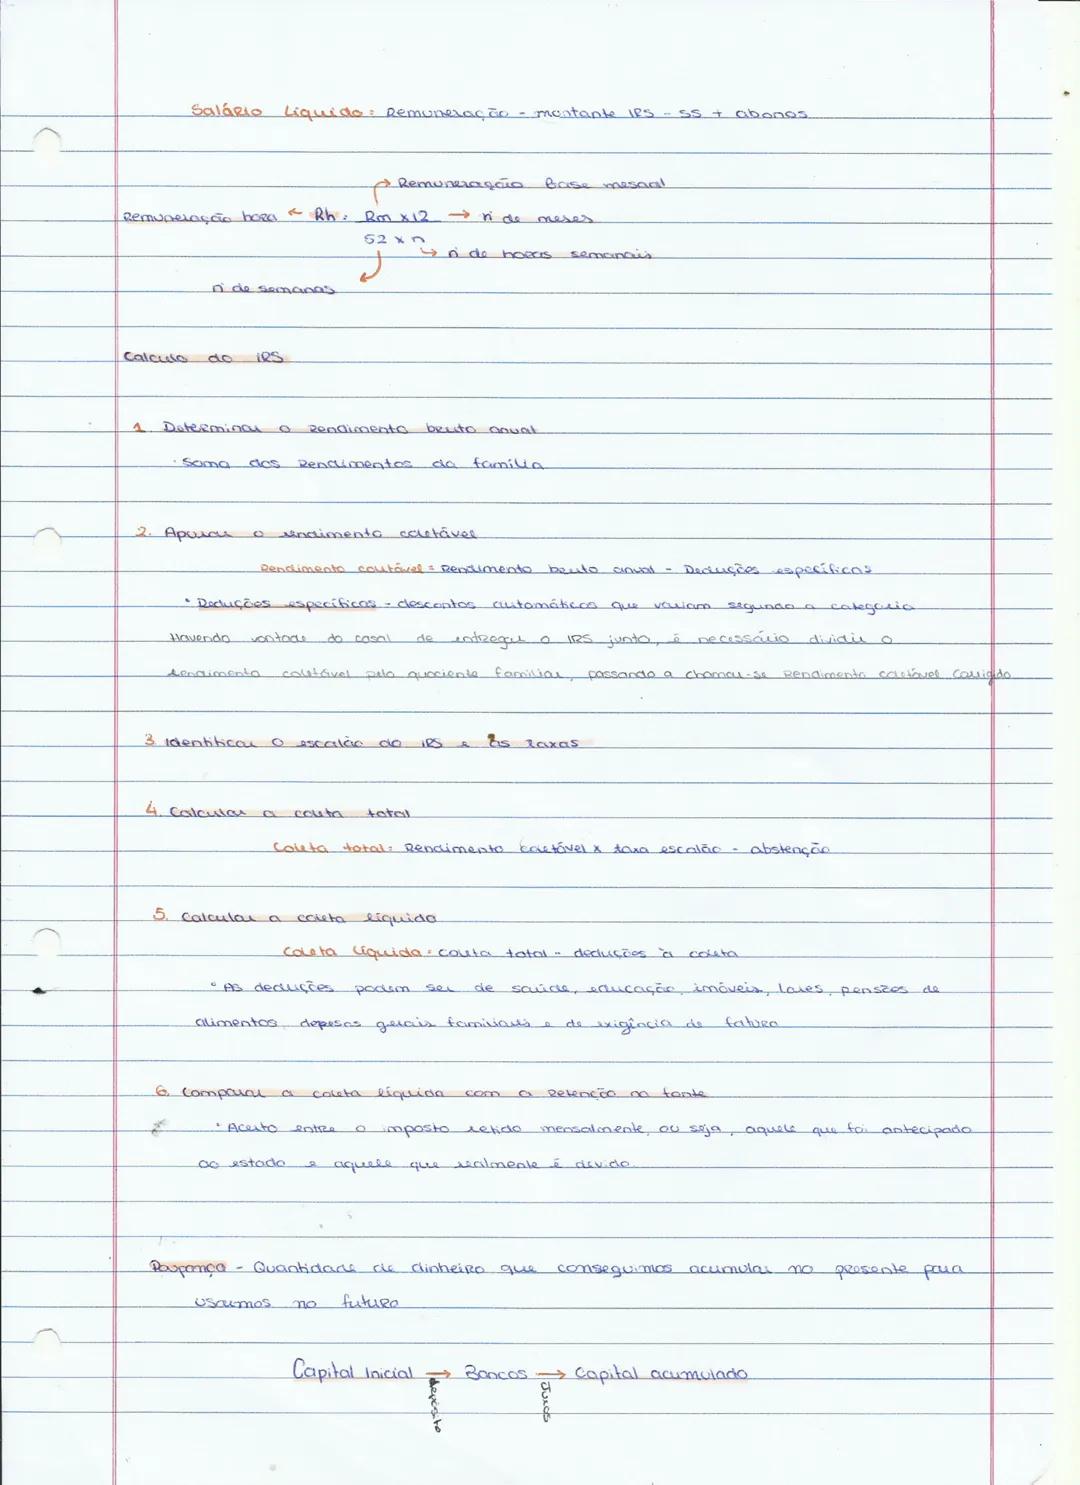 Salário Liquido: Remuneração - montante IRS - SS + abonos
Remuneração Base mesaal
Remuneração hora ← Rh: Rm x12 → nº de meses
52 x n
nº de horas semanais
nº de semanas
Calculo do IRS
1. Determinar o rendimento bruto anual
· Soma dos Rendimentos da família
2. Apurar o rendimento coletável
Rendimento coletável = Rendimento bruto anual - Deduções específicas
• Deduções específicas - descontos automáticos que variam segundo a categoria
Havendo vontade do casal de entregar o IRS junto, é necessário dividir o
rendimento coletável pelo quociente familiar, passando a chamar-se Rendimento coletável Corrigido
3. Identificar o escalão do IRS e as taxas
4. Calcular a coleta total
Coleta total: Rendimento coletável x taxa escalão - abstenção
5. Calcular a coleta líquida
Coleta líquida: coleta total - deduções à coleta
• As deduções podem ser de saúde, educação, imóveis, lares, pensões de
alimentos, depesas gerais familiares e de exigência de fatura
6. Comparar a coleta líquida com a Retenção na fonte
• Acerto entre o imposto retido mensalmente, ou seja, aquele que foi antecipado
ao estado e aquele que realmente é devido.
Poupança - Quantidade de dinheiro que conseguimos acumular no presente para
usarmos no futuro
Capital Inicial → Bancos → Capital acumulado
depósito
Juros